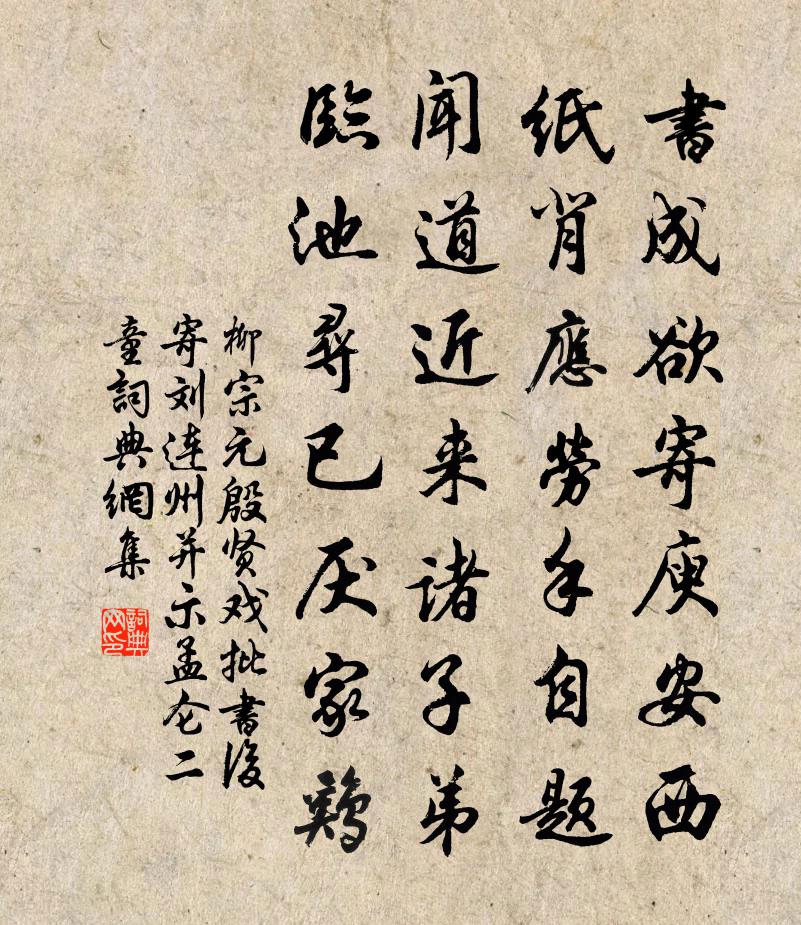 書成欲寄庾安西
紙背應勞手自題
聞道近来諸子弟
臨池尋已厌家鷄
柳宗元殷贤戏批書後
寄刘连州并示孟仑二
童詞典網集
詞典
网印